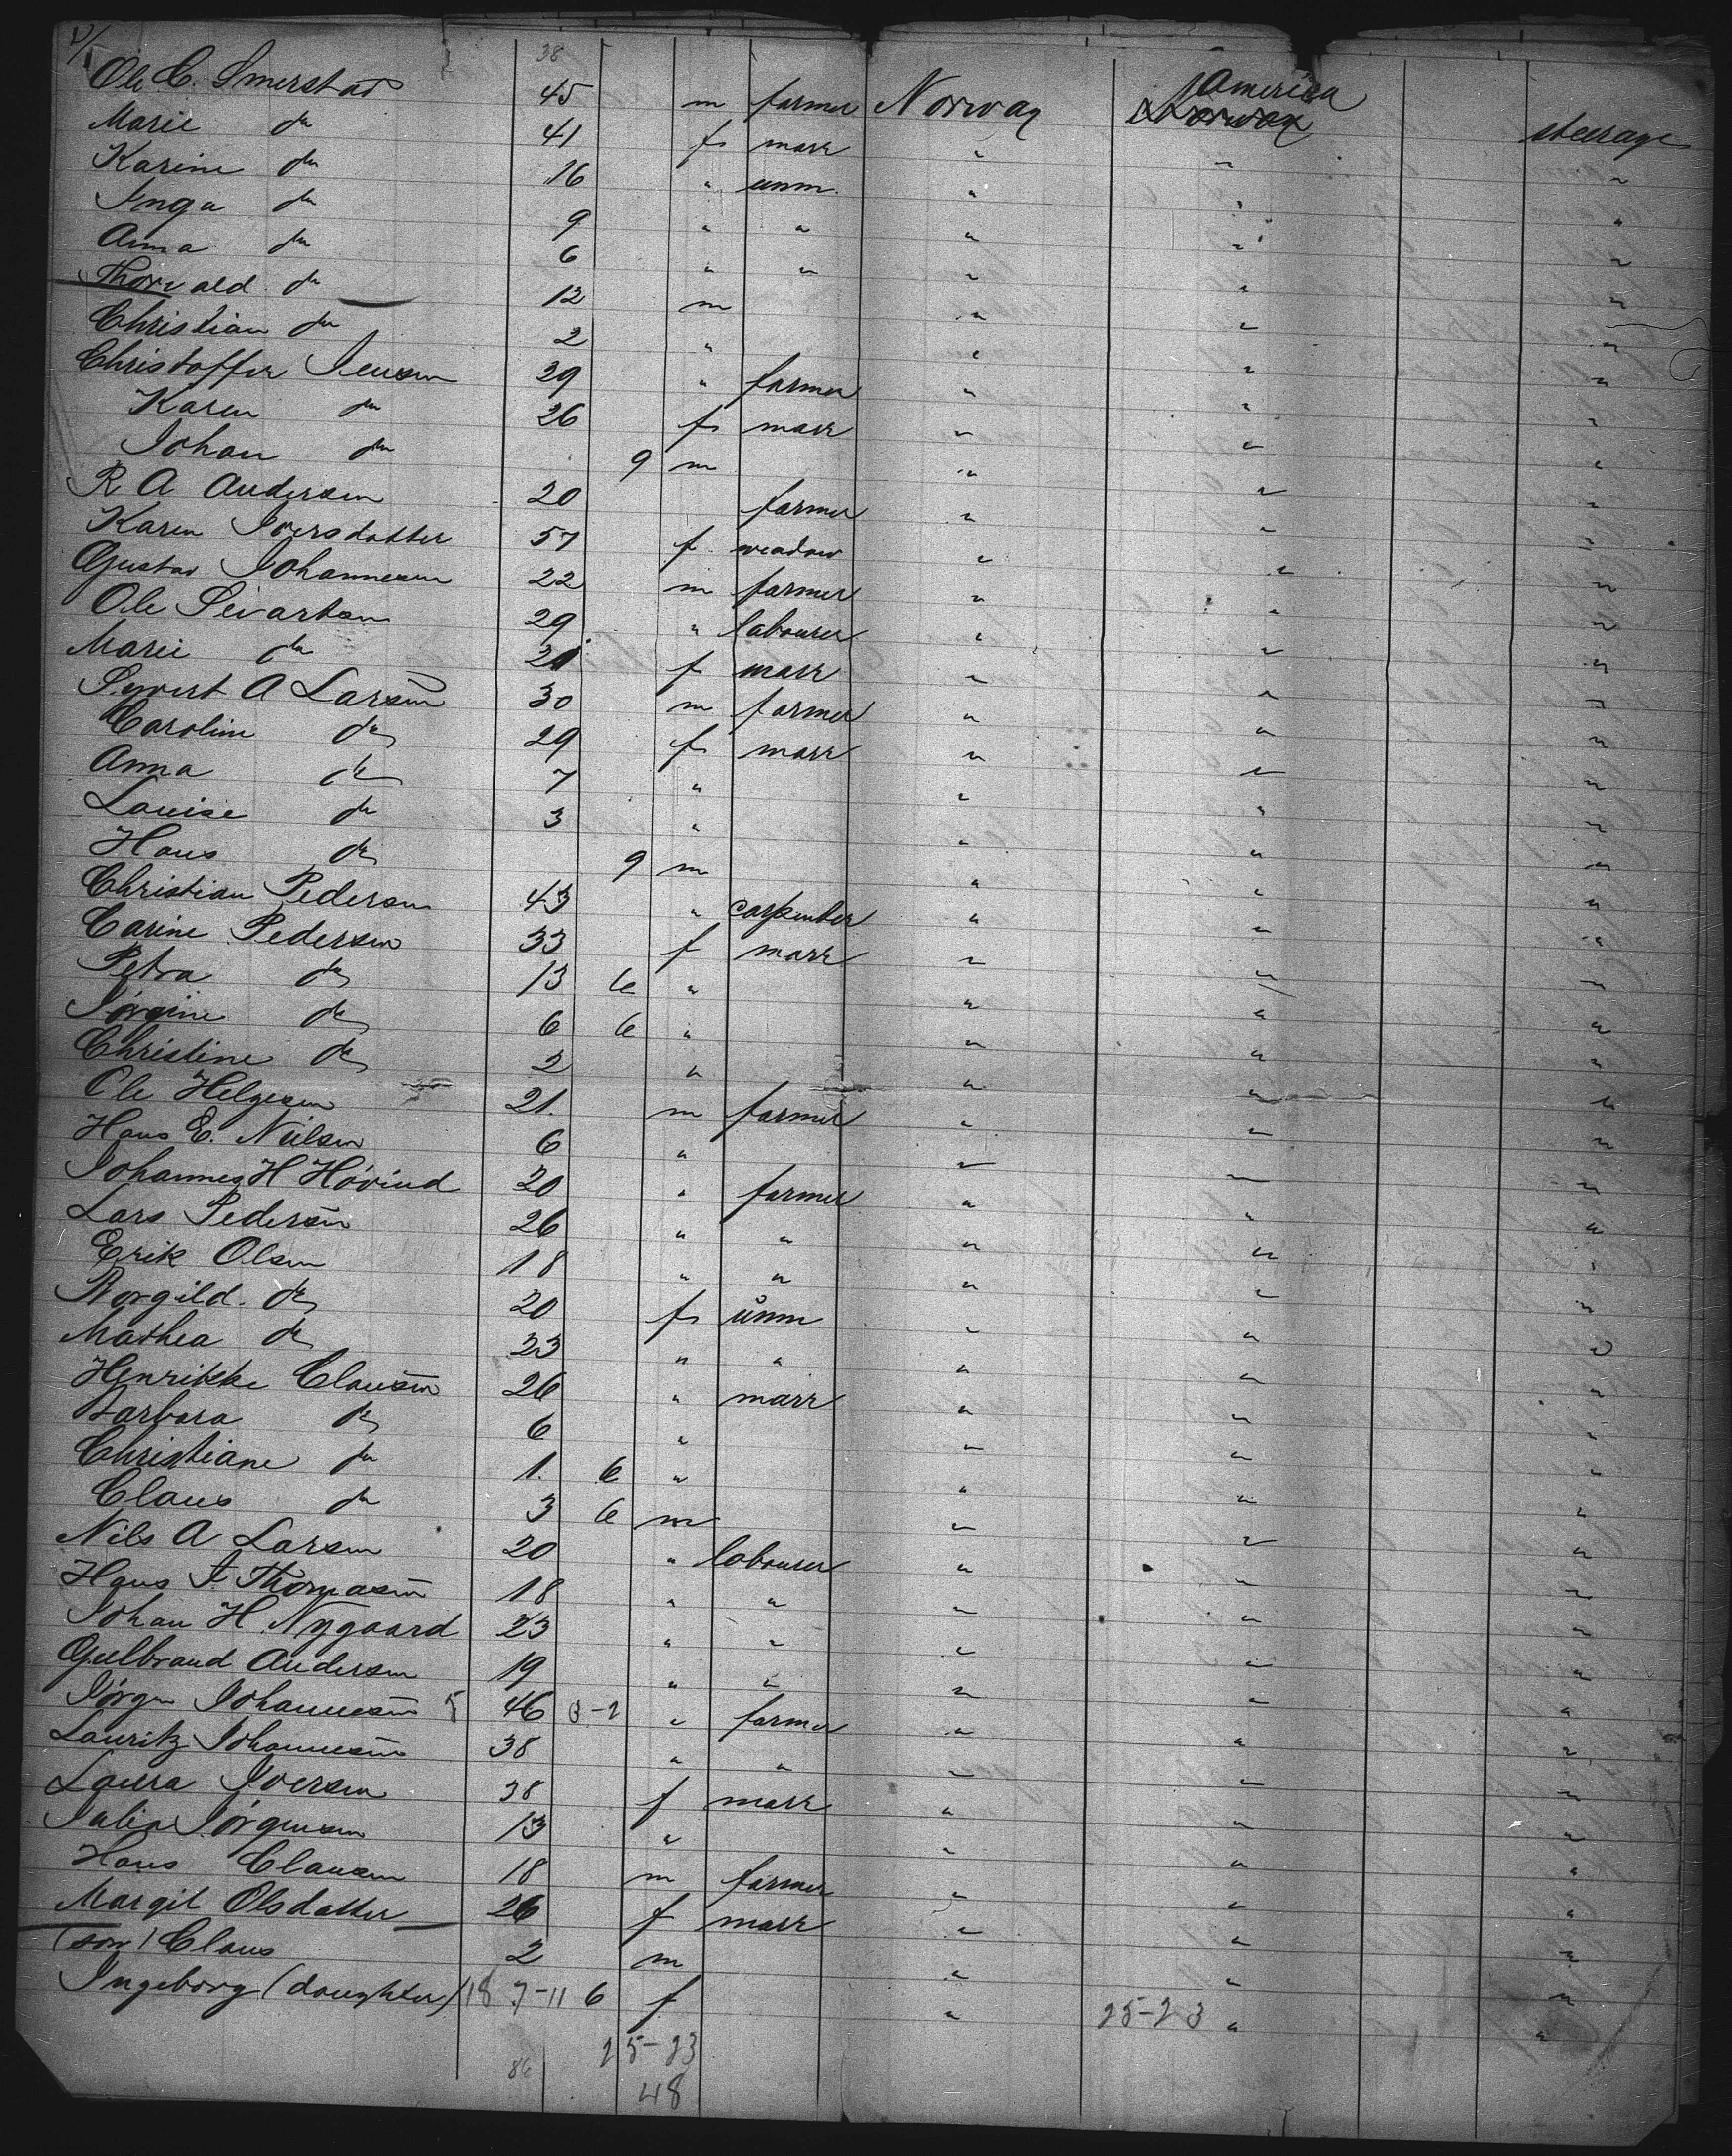 38
Ole C. Smerstad 45 m farmer Norway America Norway steerage
Marie do 41 f marr " " "
Karine do 16 " unm. " " "
Inga do 9 " " " " "
Anna do 6 " " " " "
Thorvald do 12 m " " "
Christian do 2 " " " "
Christoffer Jensen 29 " farmer " " "
Karen do 26 f marr " " "
Johan do 9 m " " "
R A Andersen 20 farmer " " "
Karen Iversdatter 57 f weadow " " "
Gustav Johannesen 22 m farmer " " "
Ole Sivartsen 29 " labourer " " "
Marie do 21 f marr " " "
Syvert A Larsen 30 m farmer " " "
Caroline do 29 f marr " " "
Anna do 7 " " " "
Louise do 3 " " " "
Hans do 9 m " " "
Christian Pedersen 43 " carpenter " " "
Carine Pedersen 33 f marr " " "
Petra do 13 6 " " " "
Jørgine do 6 6 " " " "
Christine do 2 " " " "
Ole Helgesen 21. m farmer " " "
Hans E. Nielsen 6 " " " "
Johannes H Hövind 20 " farmer " " "
Lars Pedersen 26 " " " " "
Erik Olsen 18 " " " " "
Borgild. do 20 f unm " " "
Mathea do 23 " " " " "
Henrikke Clausen 26 " marr " " "
Barbara do 6 " " " "
Christiane do 1. 6 " " " "
Claus do 3 6 m " " "
Nils A Larsen 20 " labourer " " "
Hans T Thomasen 18 " " " " "
Johan H. Nygaard 23 " " " " "
Gulbrand Andersen 19 " " " " "
Jørgen Johannesen 5 46 3-2 " farmer " " "
Lauritz Johannesen 38 " " " " "
Laura Iversen 38 f marr " " "
Julia Jørgensen 13 " " " "
Hans Clausen 18 m farmer " " "
Margit Olsdatter 26 f marr " " "
(son) Claus 2 m " " "
Ingeborg (daughter) 18 7-11 6 f " 25-23 " "
25-23
86 48